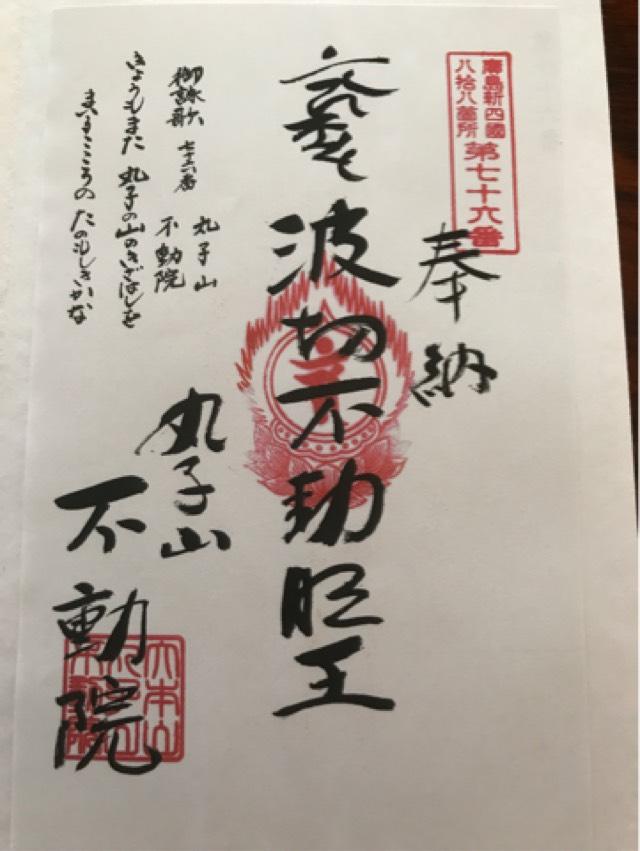 廣島新四國
八拾八箇所
第七十六番
奉納
波切不動明王
御詠歌 七十六番 丸子山
不動院
きょうもまた 丸子の山のきざはしを
まもるこころの たのもしきかな
丸子山
不動院